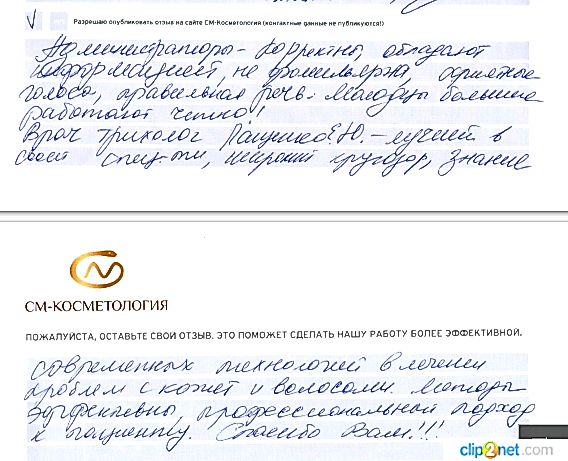 V Разрешаю опубликовать отзыв на сайте СМ-Косметология (контактные данные не публикуются!)
Администраторы - корректны, обладают
информацией, не фамильярны, приятные
голоса, правильная речь. Молодцы большие
работают четко!
Врач трихолог Ю. - лучший в
своей спец-ти, широкий кругозор, знание
СМ-КОСМЕТОЛОГИЯ
ПОЖАЛУЙСТА, ОСТАВЬТЕ СВОЙ ОТЗЫВ. ЭТО ПОМОЖЕТ СДЕЛАТЬ НАШУ РАБОТУ БОЛЕЕ ЭФФЕКТИВНОЙ.
современных технологий в лечении
проблем с кожей и волосами. Методы
эффективны, профессиональный подход
к пациенту. Спасибо Вам!!!
clip2net.com